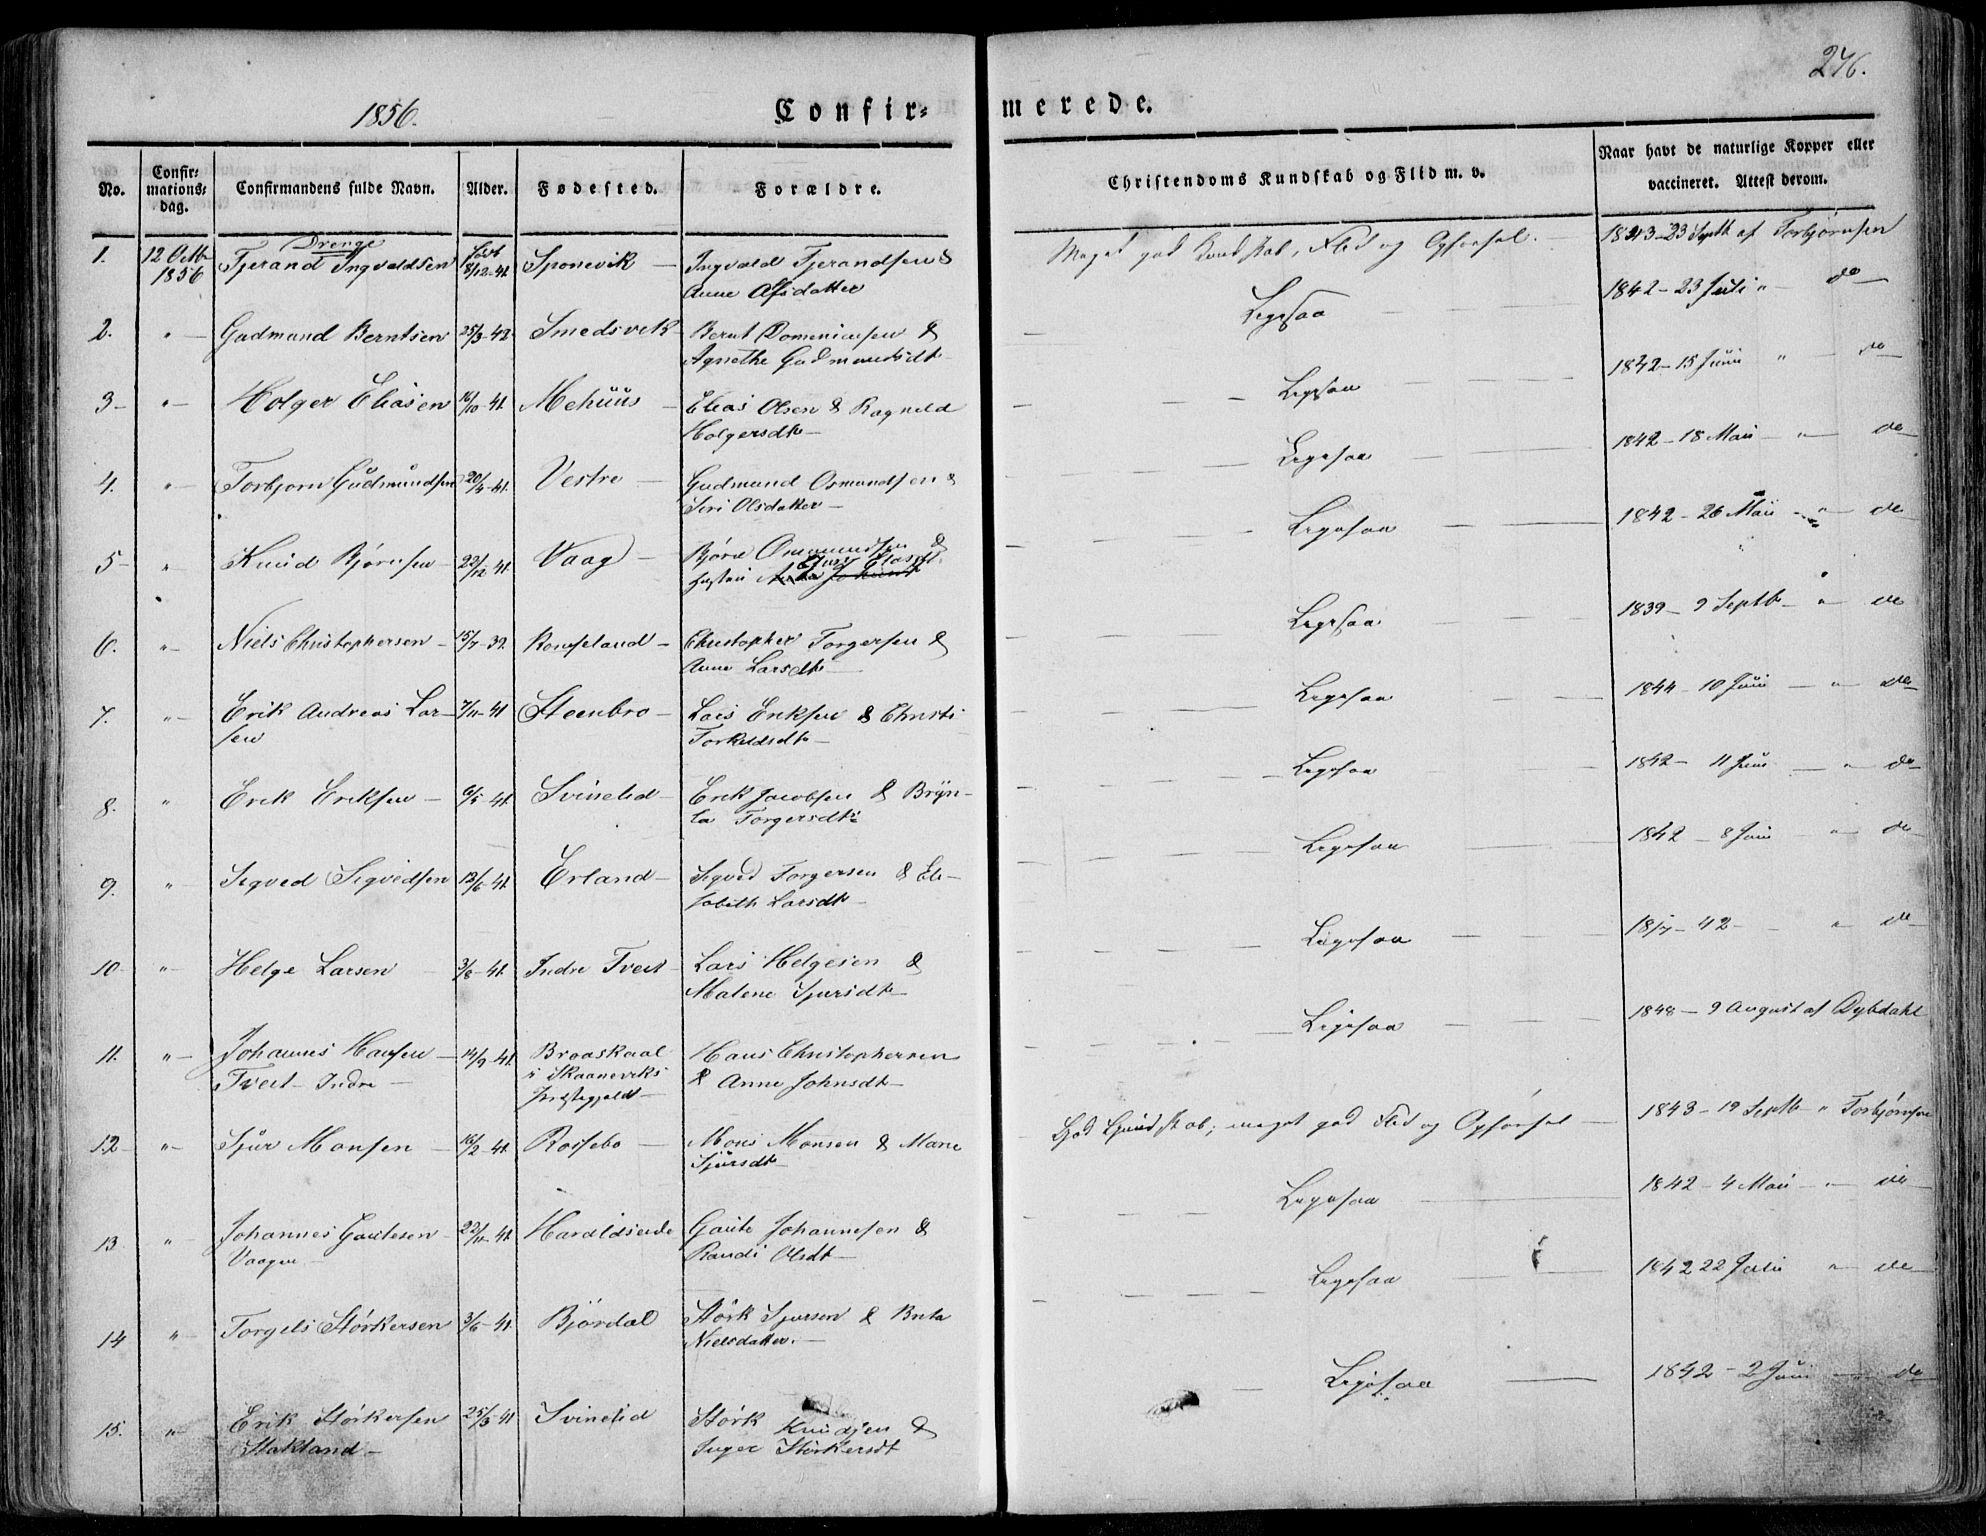 246.
1856.
Confir-
merede.
No.
Confir-
mations-
dag.
Confirmandens fulde Navn.
Alder.
Fødested.
Forældre.
Christendoms Kundskab og Flid m. v.
Naar havt de naturlige Kopper eller
vaccineret. Attest derom.
Drenge
1. 12 Octb 1856 Tjerand Ingvaldsen født 8/12-41 Sponevik — Ingvald Tjerandsen &
Anne Olsdatter
Meget god Kundskab, Flid og Opførsel. 1843-23 Septb af Torbjørnsen
2. " Gudmund Berntsen 25/3-42 Smedsvik Bernt &
Agnethe Gudmundsdt
Ligesaa 1842-23 Juli " do
3 " Holger Eliasen 16/10-41 Mehuus Elias Olsen & Ragnild
Holgersdt
Ligesaa 1842-15 Juni " do
4. " Torbjørn Gudmundsen 20/4-41. Vestre Gudmund Osmundsen &
Siri Olsdatter
Ligesaa 1842-18 Mai " do
5 " Knud Bjørnsen 22/12-41. Vaag Bjørn &
Ligesaa 1842-26 Mai " do
6. " Niels Christophersen 15/7-39. Christopher Torgersen &
Anne Larsdt
Ligesaa 1839-9 Septb " do
7. " Erik Andreas Lar-
sen 7/11-41 Steenbro Lars Eriksen & Christi
Torkildsdt
Ligesaa 1844-10 Juni " do
8. " Erik Eriksen 6/5-41. Svinelid Erik Jacobsen & Bryn-
la Torgersdt
Ligesaa 1842-11 Juni " do
9. " Sigved Sigvedsen 12/6-41. Erland Sigved Torgersen & Eli-
sabeth Larsdt
Ligesaa 1842-8 Juni " do
10 " Helge Larsen 3/8-41. Indre Tveit Lars Helgesen &
Malene Sjursdt
Ligesaa 18/7-42 " do
11. " Johannes Hansen
Tveit Indre 14/9-41. Braaskaal
i Skaaneviks
Præstegjeld Hans Christophersen
& Anne Johnsdt
Ligesaa 1848-9 August af Dybdahl
12 " Sjur Monsen 16/2-41. Rossebo Mons Monsen & Marie
Sjursdt
God Kundskab; meget god Flid og Opførsel 1843-19 Septb " Torbjørnsen
13 " Johannes Gautesen
Vaagen 22/11-41. Haraldseide Gaute Johannesen &
Randi Olsdt
Ligesaa 1842-4 Mai " do
14 " Torgels Størkersen 3/6-41. Bjørdal Størk Sjursen & Brita
Nielsdatter.
Ligesaa 1842 22 Juli " do
15. " Erik Størkersen
Stakland 25/3-41 Svinelid Størk Knudsen &
Inger Størkersdt
Ligesaa 1842-2 Juni do